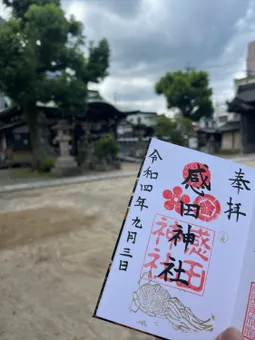 奉拝
感田神社
感田
神社
令和四年九月三日